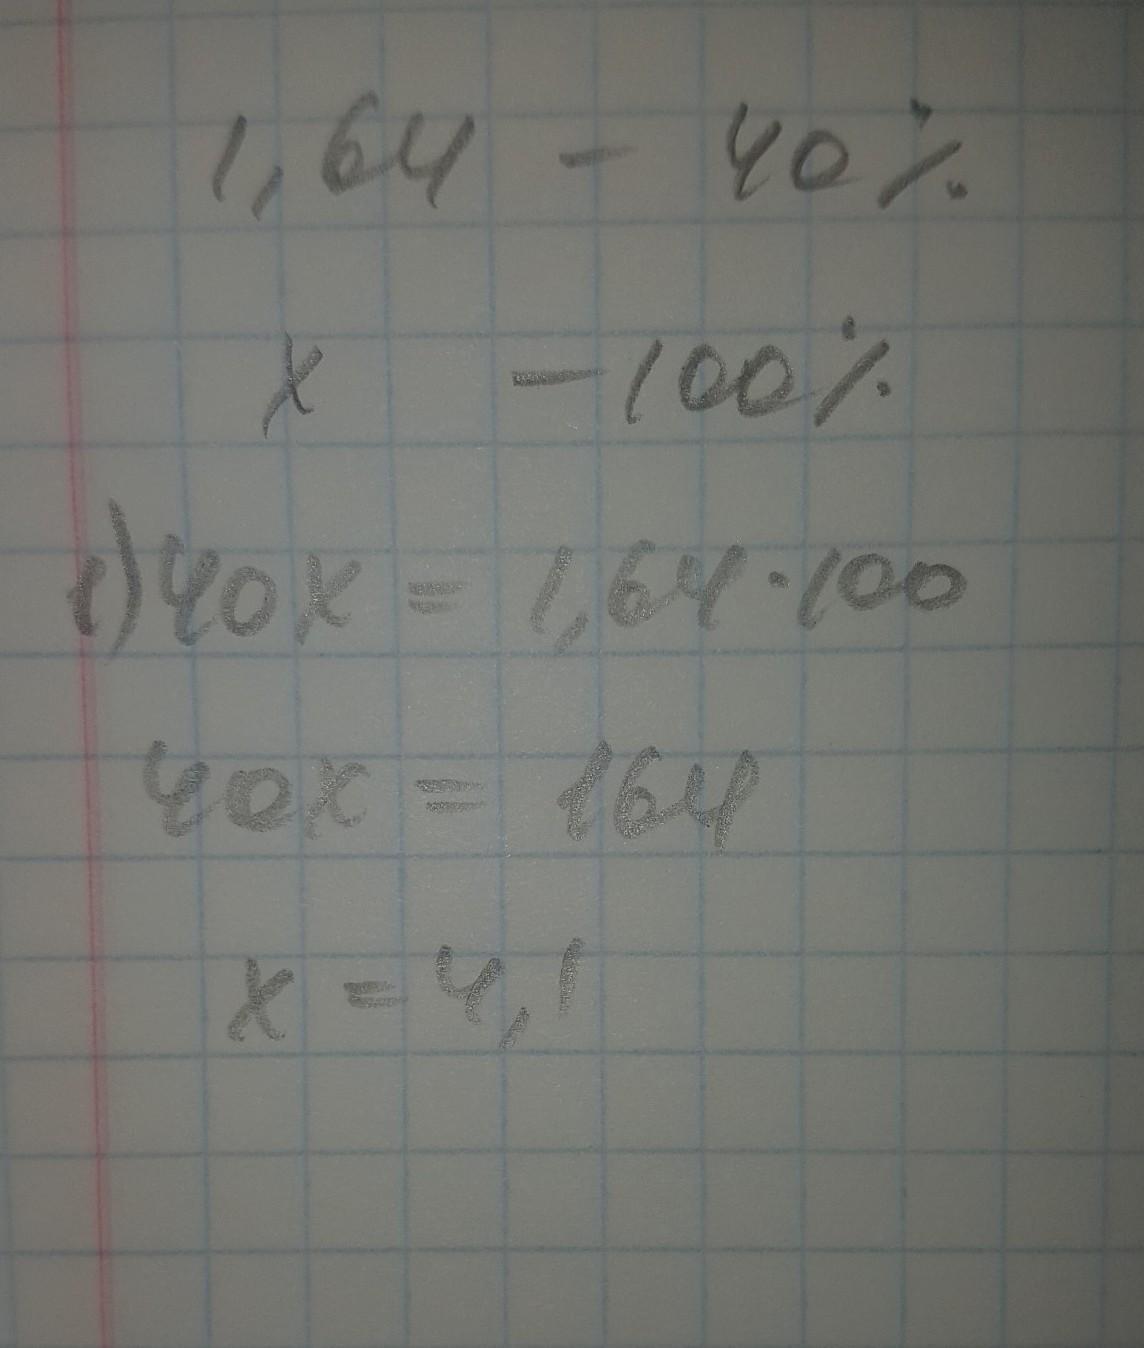 1,64 - 40%
x - 100%
1) 40x = 1,64 · 100
40x = 164
x = 4,1